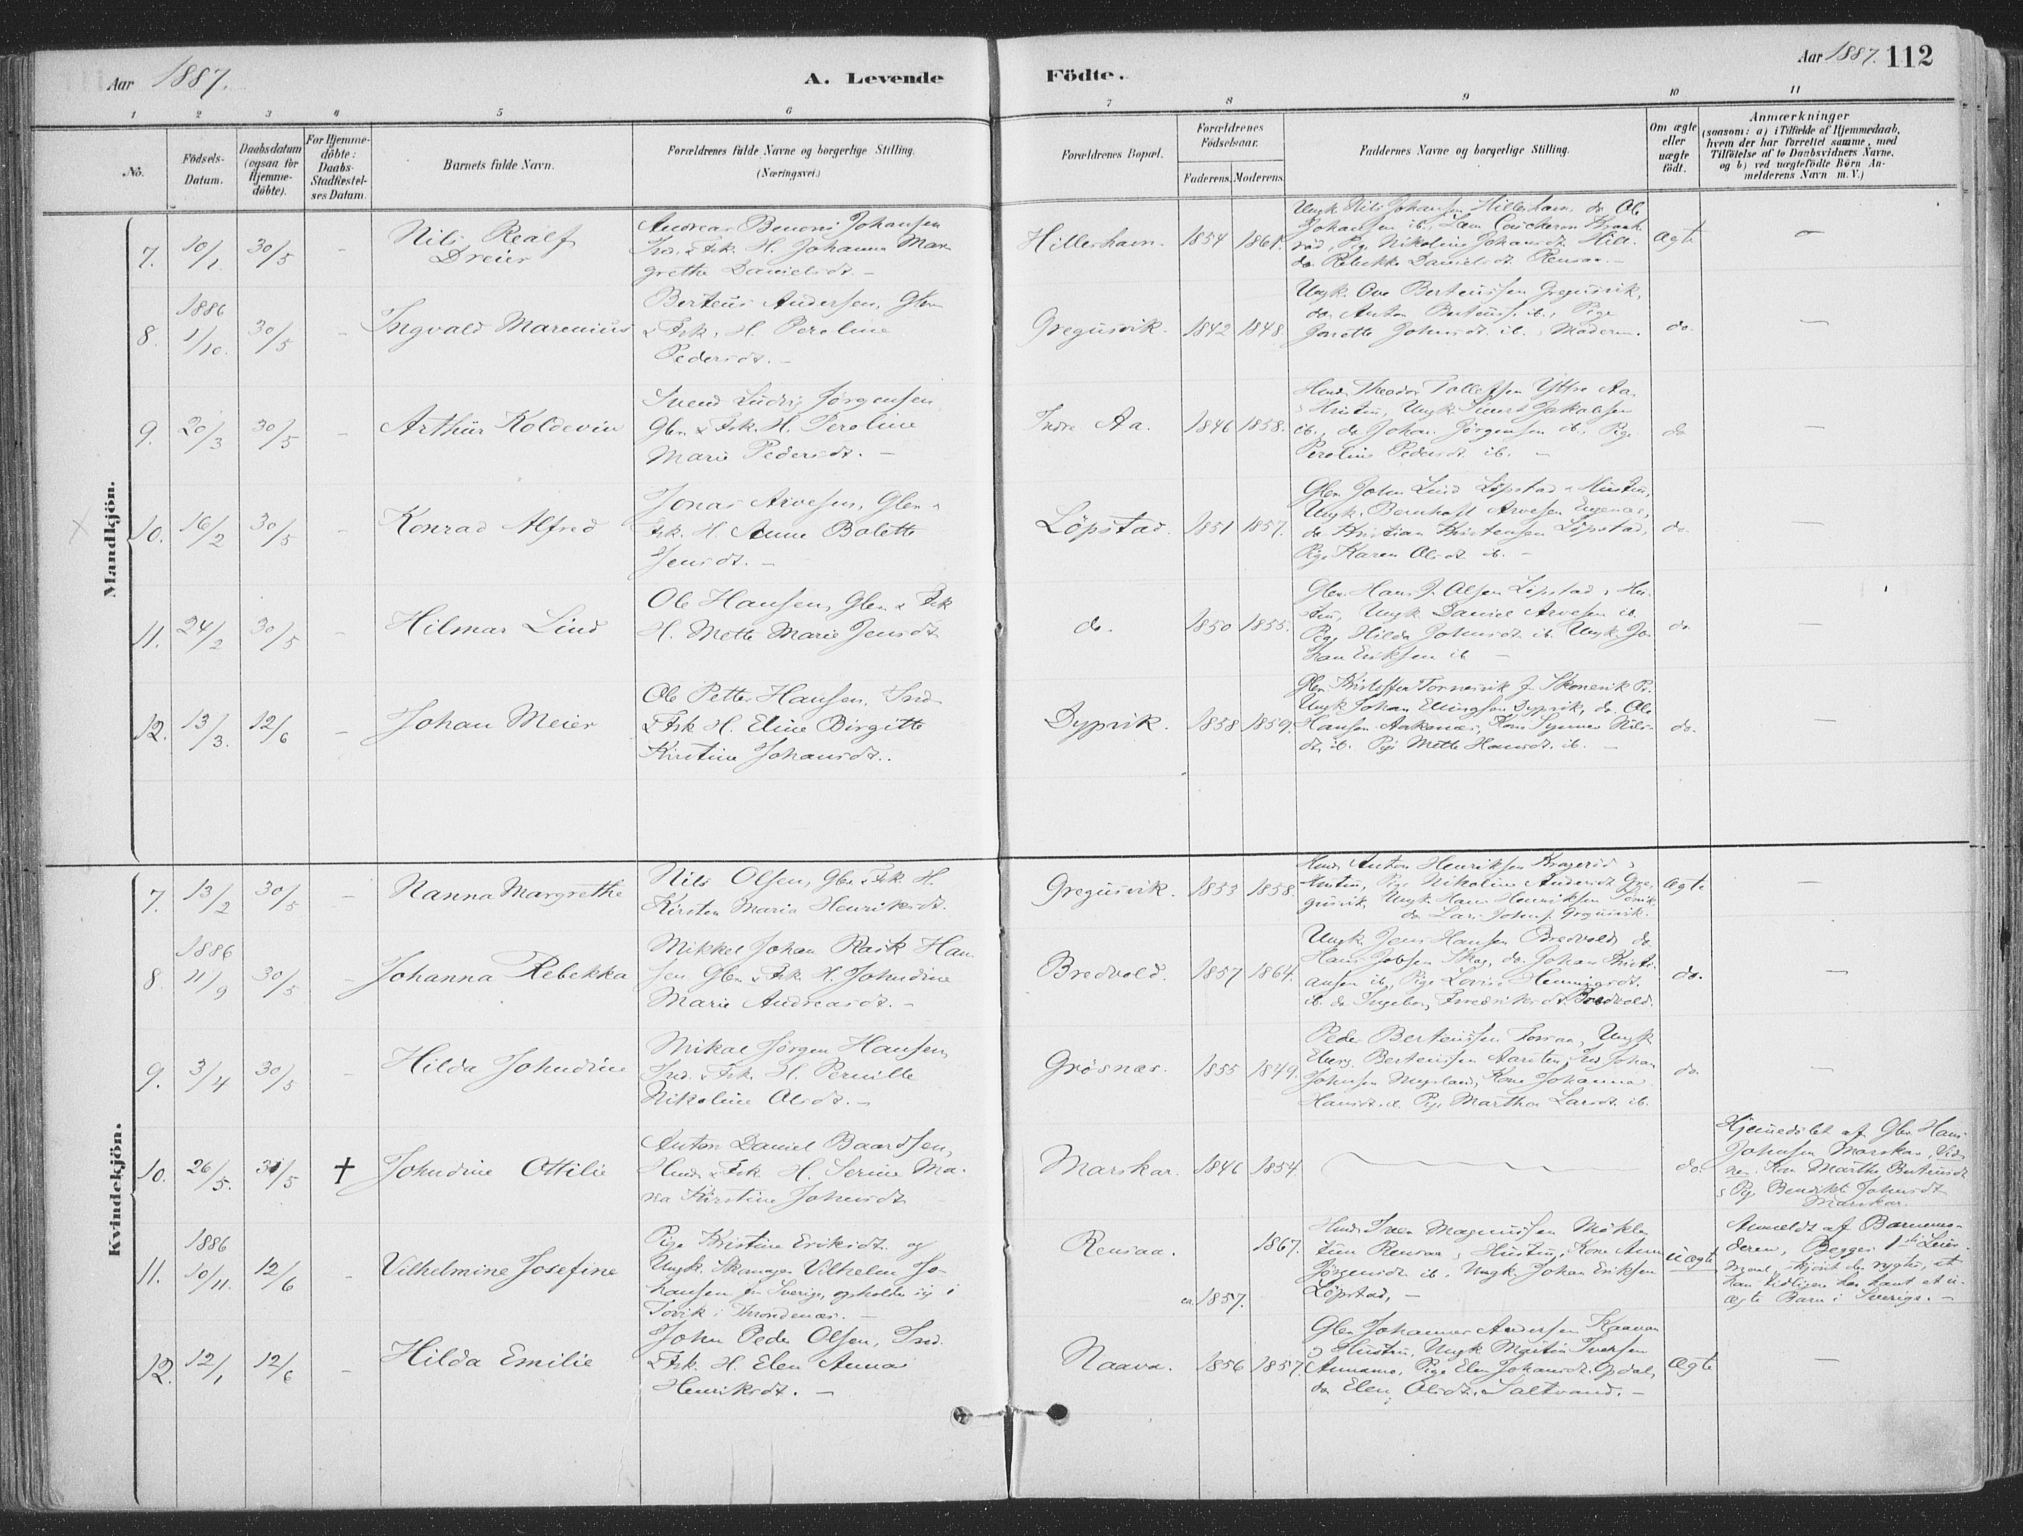 Aar 1887.
A. Levende
Födte.
Aar 1887. 112
1 2 3 4 5 6 7 8 9 10 11
No.
Födsels-Datum.
Daabsdatum (ogsaa for Hjemme-döbte).
For Hjemme-döbte: Daabs-Stadfæstel-ses Datum.
Barnets fulde Navn.
Forældrenes fulde Navne og borgerlige Stilling.
(Næringsvei.)
Forældrenes Bopæl.
Forældrenes Födselsaar.
Faderens. Moderens.
Faddernes Navne og borgerlige Stilling.
Om ægte eller uægte födt.
Anmærkninger
(saasom: a) i Tilfælde af Hjemmedaab, hvem der har forrettet samme, med Tilföielse af to Daabsvidners Navne. og b) ved uægtefödte Börn An-melderens Navn m. V.)
Mandkjön.
7. 10/1. 30/5 - Nils Realf Dreier
Andreas Benoni Johansen
Ind. & Fsk. H. Johanna Mar-
grethe Danielsdt. -
Hillerhavn. 1854 1861.
Ungk Nils Johansen Hillerhavn, do Ole
Johansen ib.,
Pige Nikoline Johansdt.
do Rebekka Danielsdt. Rensaa. -
Ægte
8. 1886 1/10. 30/5 - Ingvald Marenius
Berteus Andersen, Gbr.
& Fsk. H. Peroline
Pedersdt. -
Gregusvik. 1842 1848.
Ungk. Ove Berteussen Gregusvik,
do Anton Berteuss. ib., Pige
Johnsdt. ib., Moderen.
do. -
9. 20/3 30/5 - Arthur Koldevin
Svend Ludvig Jørgensen
Gbr. & Fsk. H. Peroline
Marie Pedersdt. -
Indre Aa. 1846 1858.
Husm. Theodor Tollefsen Yttre Aa
& Hustru, Ungk. Sivert Jakobsen
ib., do Johan Jørgensen ib., Pige
Peroline Pedersdt. ib. -
do -
10. 16/2 30/5 - Konrad Alfred
Jonas Arvesen, Gbr. &
Fsk. H. Anne Bolette
Jensdt. -
Løpstad. 1851 1857.
Gbr. John Lind Løpstad & Hustru,
Ungk. Bernhoft Arvesen
do Kristian Kristensen Løpstad,
Pige Karen Olsdt. ib. -
do. -
11. 24/2 30/5 - Hilmar Lind
Ole Hansen, Gbr. & Fsk
H. Mette Marie Jensdt.
do. 1850 1855.
Gbr. Hans J. Olsen Løpstad & Hu-
stru, Ungk. Daniel Arvesen ib,
Pige Hilda Johnsdt. ib. Ungk. Jo-
han Eriksen ib -
do -
12. 13/3. 12/6 - Johan Meier
Ole Petter Hansen, Ind.
& Fsk. H. Eline Birgitte
Kirstine Johansdt..
Dypvik. 1858 1859.
Gbr. Kristoffer
Ungk Johan Ellingsen Dypvik, do Ole
Hansen Aakenæs, Kone Synnev Nils-
dt. ib. Pige Mette Hansdt. ib. -
do. -
Kvindekjön.
7. 13/2 30/5 - Nanna Margrethe
Nils Olsen, Gbr. & Fsk. H.
Kirsten Maria Henriksdt.
Gregusvik. 1853 1858.
Husm. Anton Henriksen &
Hustru, Pige Nikoline Andersdt. Gre-
gusvik, Ungk. Hans Henriksen
do Lars Johns. Gregusvik.
Ægte -
8. 1886 11/9 30/5 - Johanna Rebekka
Mikkel Johan Rask Han-
sen Gbr. & Fsk. H. Johndine
Marie Andreasdt. -
Bredvold. 1857 1864.
Ungk Jens Hansen Bredvold, do
Hans Jobsen Skog, do Johan Kristi-
ansen ib, Pige Lovise Henningsdt.
ib. do Ingeborg Fredriksdt. Bredvold.
do. -
9. 3/4 30/5 - Hilda Johndine
Mikal Jørgen Hansen,
Ind. & Fsk. H. Pernille
Nikoline Olsdt. -
Grøsnæs. 1855 1849.
Peder Berteussen Forraa, Ungk
Berteussen Aarsten, Ind Johan
Johnsen Kone Johanna
Hansdt. ib. Pige Martha Larsdt. ib.
do. -
10. 26/5. 31/5 ✝ Johndine Ottilie
Anton Daniel Baardsen,
Husm. & Fsk. H. Serine Ma-
rea Kirstine Johnsdt.
Marskar. 1846 1854.
do.
Hjemmedøbt af Gbr. Hans
Johnsen Marskar. Vid-
ner, Kone Marthe Berteusdt.
& Pige Benedikte Johnsdt.
Marskar.
11. 1886 10/11. 12/6 - Vilhelmine Josefine
Pige Kristine Eriksdt. og
Ungk. Skomager Vilhelm Jo-
hansen fra Sverige, opholder sig i
Tovik i Throndenæs. -
Rensaa. ca. 1857. 1867.
Husm. Iver Magnussen
Rensaa & Hustru, Kone Anne
Jørgensdt. ib., Ungk. Johan Eriksen
Løpstad, -
Uægte
Anmeldt af Barnemo-
deren, Begges 1ste Leier-
maal, skjønt der rygtes, at
han tidligere har havt et u-
ægte Barn i Sverige. -
12. 12/1 12/6 - Hilda Emilie
John Peder Olsen, Ind.
& Fsk. H. Elen Anna
Henriksdt. -
Naava. 1856 1857.
Gbr. Johannes Andersen
& Hustru, Ungk Martin Iversen
Pige Elen Johansdt.
do Elen Olsdt. Saltvand. -
Ægte -